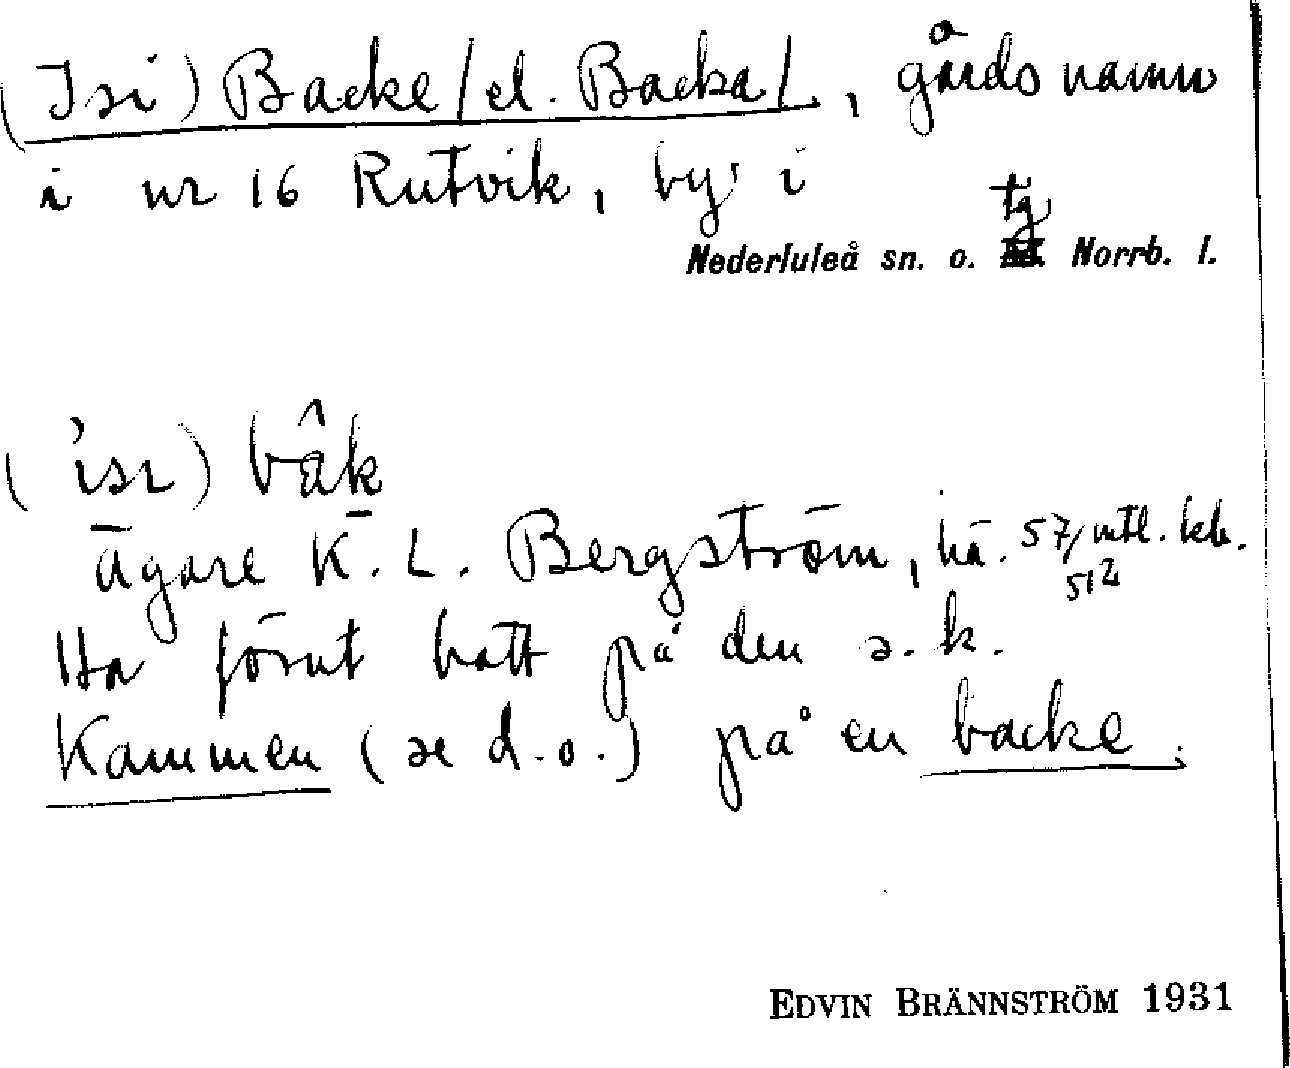 (Isi) Backe/el. Backa/, gårdsnamn
i nr 16 Rutvik, by i
tg
Nederluleå sn. o. Norrb. l.
('isı) bâk
Ägare K. L. Bergström, hä. 57/512 mtl. kb.
Ha förut bott på den s.k.
Kammen (se d.o.) på en backe.
EDVIN BRÄNNSTRÖM 1931